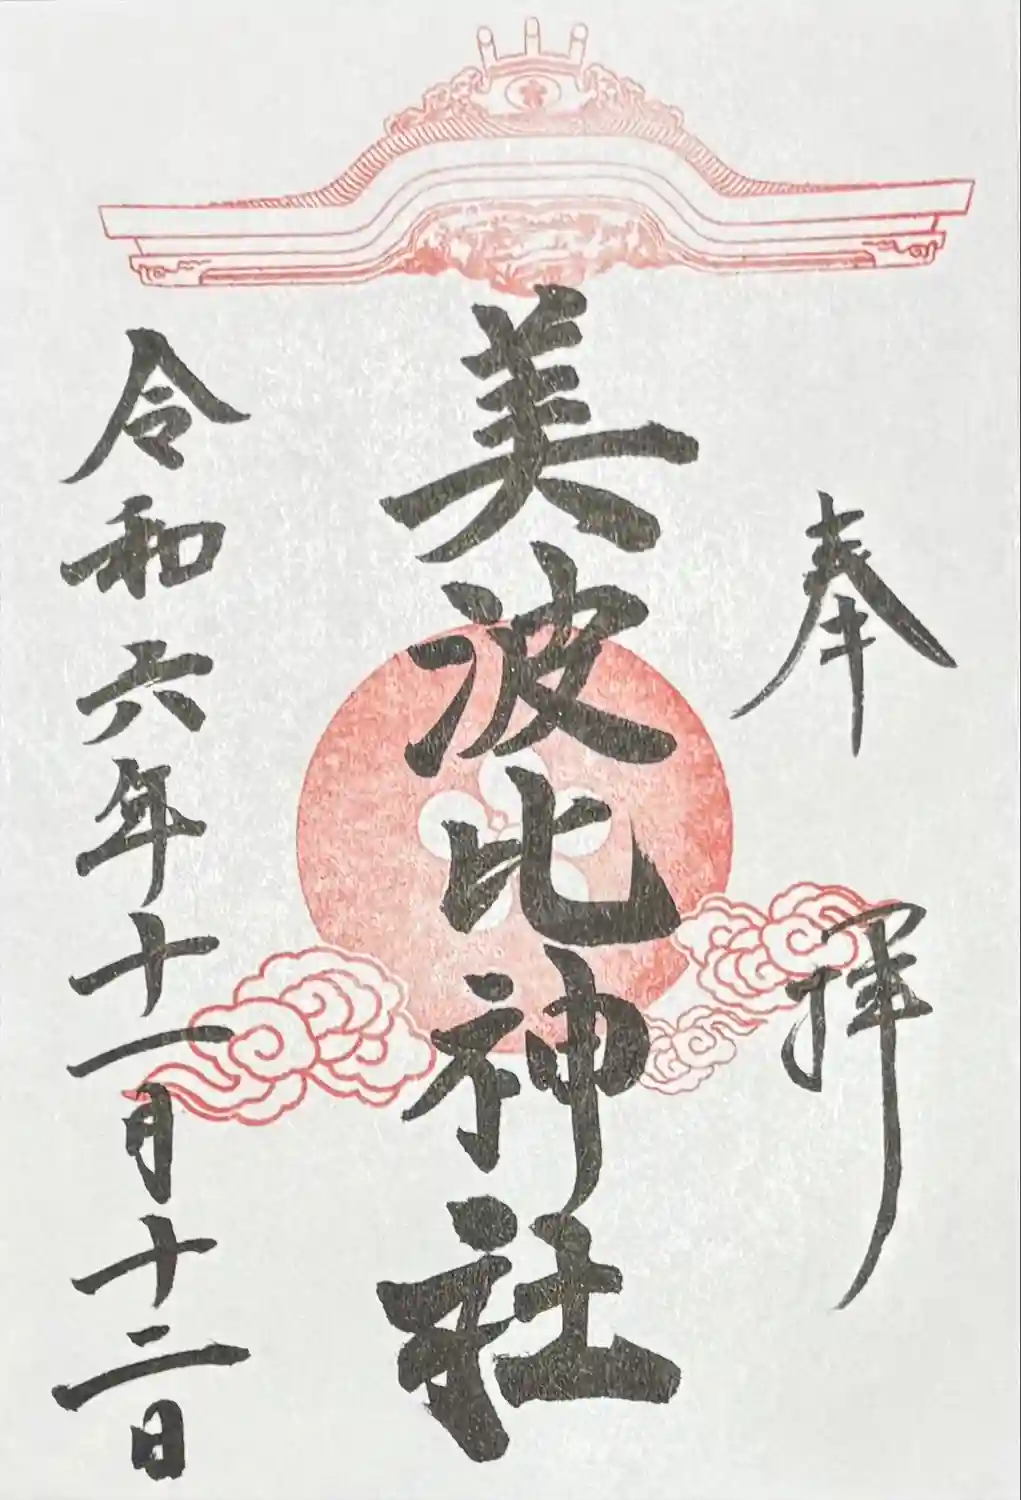 奉拝
美波比神社
令和六年十一月十二日